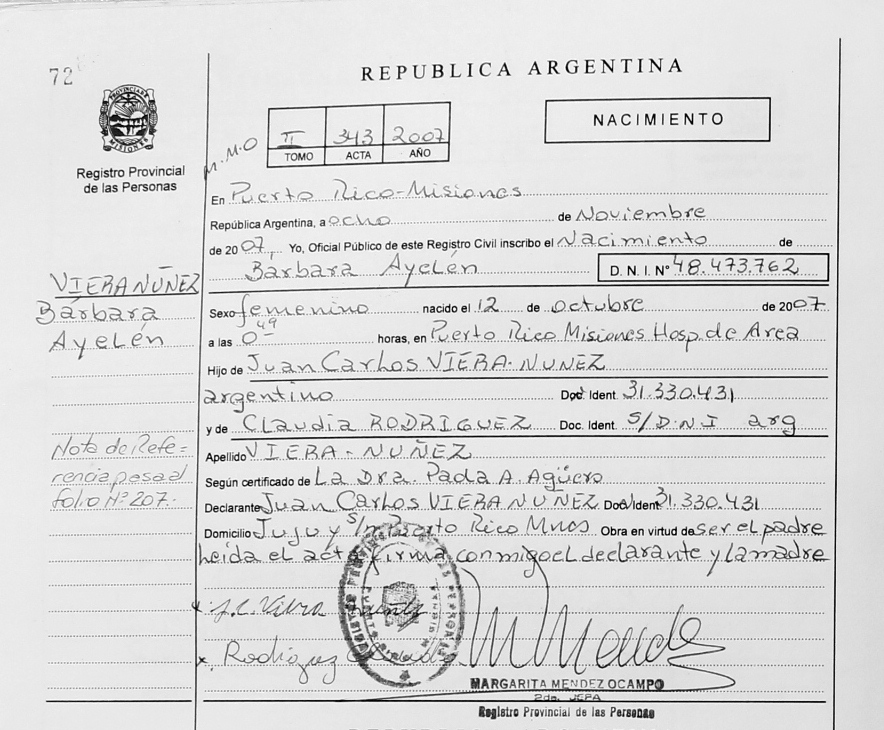 72
REPUBLICA ARGENTINA
PROVINCIA DE MISIONES
Registro Provincial
de las Personas
M.M.O
II 343 2007
TOMO ACTA AÑO
NACIMIENTO
En Puerto Rico-Misiones
República Argentina, a ocho de Noviembre
de 2007, Yo, Oficial Público de este Registro Civil inscribo el Nacimiento de
Bárbara Ayelén D.N.I. Nº 48.473.762
VIERA NUÑEZ
Bárbara
Ayelén
Sexo femenino nacido el 12 de octubre de 2007
a las 0-49 horas, en Puerto Rico Misiones Hosp. de Area
Hijo de Juan Carlos VIERA-NUÑEZ
argentino Doc. Ident. 31.330.431
y de Claudia RODRIGUEZ Doc. Ident. S/D.N.I arg
Apellido VIERA-NUÑEZ
Nota de Refe-
rencia pasa al
folio Nº 207.
Según certificado de La Dra. A. Agüero
Declarante Juan Carlos VIERA NUÑEZ Doc Ident. 31.330.431
Domicilio Jujuy s/n Puerto Rico Mnes Obra en virtud de ser el padre
Leida el acta firma conmigo el declarante y la madre
x J.C. Viera
x. Rodriguez
MARGARITA MENDEZ OCAMPO
2da. JEFA
Registro Provincial de las Personas